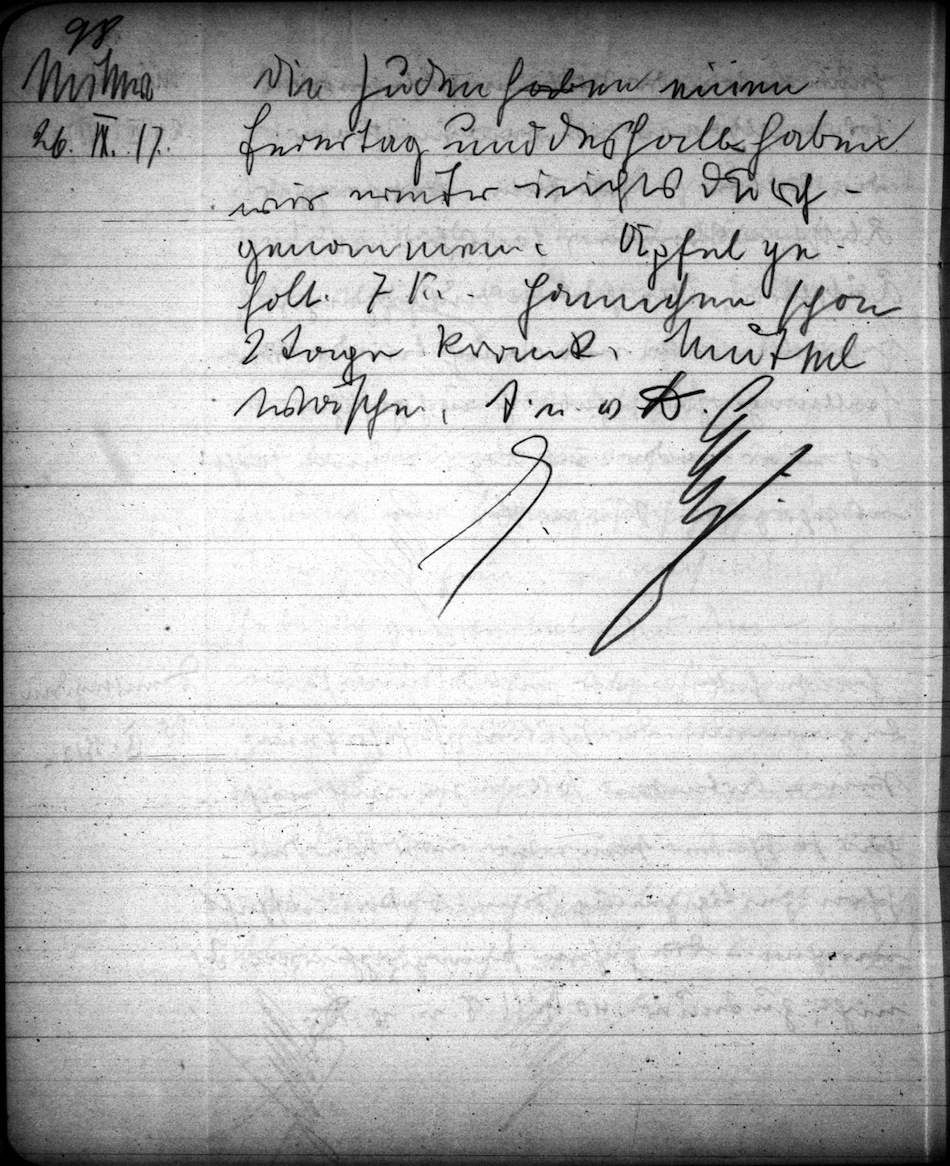 98
Mittwo
26. IX. 17.
Die Juden haben einen
Feiertag und deshalb haben
wir weiter nichts durch-
genommen. Äpfel ge-
holt. 7 K. Hannchen schon
2 Tage krank. Muttel
wäsche.